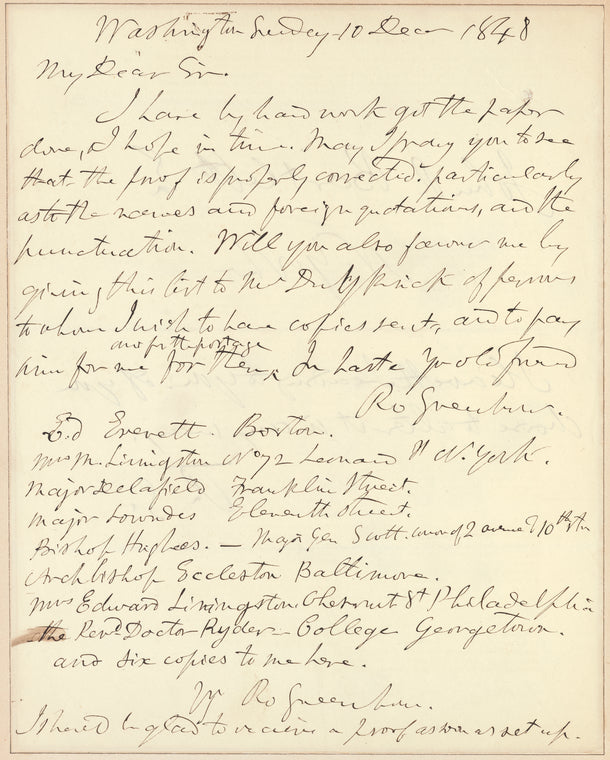 Washington Sunday 10 Decr 1848
My Dear Sir.
I have by hard work got the paper
done, & I hope in time. May I pray you to see
that the proof is properly corrected. particularly
as to the names and foreign quotations, and the
punctuation. Will you also favour me by
giving this list to Mr Duyckinck of persons
to whom I wish to have copies sent, and to pay
and for the postage
him for me for them, In haste Yr old friend
Ro Greenhow.
Ed Everett. Boston.
Mrs M. Livingston No 72 Leonard St N. York.
Major Delafield Franklin Street.
Major Lowndes Eleventh Street.
Bishop Hughes. — Maj. Gen Scott. corner of 2 avenue & 10th Str
Archbishop Eccleston Baltimore.
Mrs Edward Livingston Chesnut St Philadelphia
the Revd Doctor Ryder — College Georgetown.
and six copies to me here.
Yr Ro Greenhow.
I should be glad to receive a proof as soon as set up.